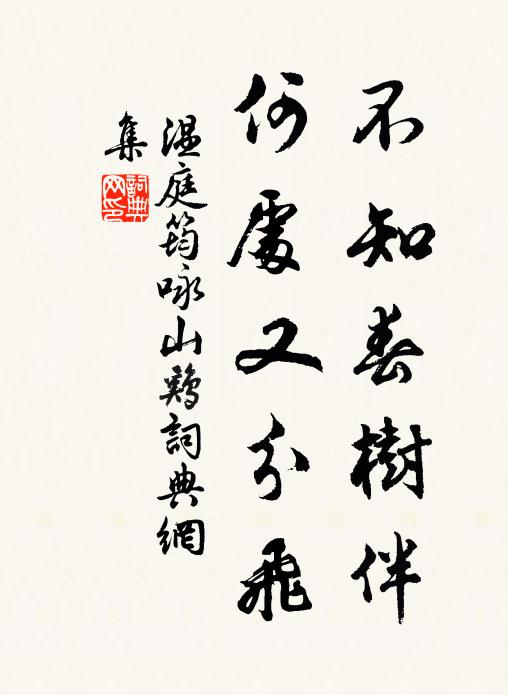 不知春樹伴
何處又分飛
溫庭筠咏山鷄詞典網
集
詞典
网印